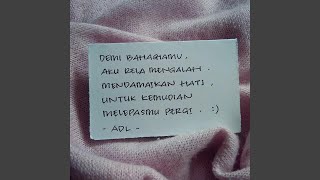 DEMI BAHAGIAMU,
AKU RELA MENGALAH.
MENDAMAIKAN HATI,
UNTUK KEMUDIAN
MELEPASMU PERGI. :)
- ADL -